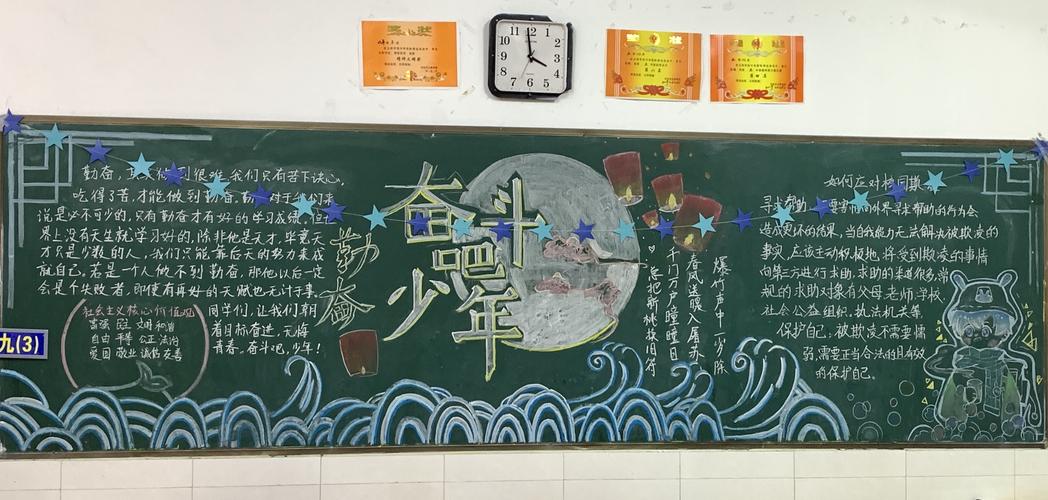 奖状
奖状
第六名
奖状
第四名
12
1
2
3
4
5
6
7
8
9
10
11
九(3)
勤奋,很难,我们只有苦下决心,
吃得了苦,才能做到勤奋,对于我们来
说是必不可少的,只有勤奋才有好的学习成绩,但世
界上没有天生就学习好的,除非他是天才,毕竟天
才只是少数的人,我们只能靠后天的努力来成
就自己,若是一个人做不到勤奋,那他以后一定
会是个失败者,即使有再好的天赋也无计于事.
同学们,让我们朝
着目标奋进,无悔
青春,奋斗吧,少年!
社会主义核心价值观
富强 民主 文明 和谐
自由 平等 公正 法治
爱国 敬业 诚信 友善
勤奋
奋斗吧少年
爆竹声中一岁除
春风送暖入屠苏
千门万户曈曈日
总把新桃换旧符
如何应对校园欺
寻求帮助,要害怕向外界寻求帮助的行为会
造成更坏的结果,当自我能力无法解决被欺凌的
事实,应该主动积极地,将受到欺凌的事情
向第三方进行求助,求助的渠道很多,常
规的求助对象有父母,老师,学校,
社会公益组织,执法机关等.
保护自己,被欺凌不需要懦
弱,需要正当合法的且有效
的保护自己.